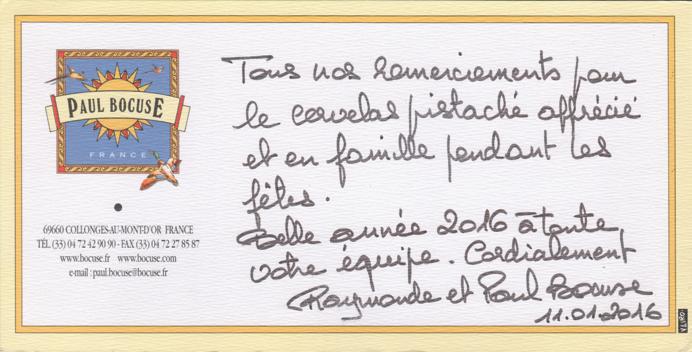 PAUL BOCUSE
FRANCE
69660 COLLONGES-AU-MONT-D'OR FRANCE
TÉL. (33) 04 72 42 90 90 - FAX (33) 04 72 27 85 87
www.bocuse.fr www.bocuse.com
e-mail : paul.bocuse@bocuse.fr
Tous nos remerciements pour
le cervelas pistaché apprécié
et en famille pendant les
fêtes.
Belle année 2016 à toute
votre équipe. Cordialement
Raymonde et Paul Bocuse
11.01.2016